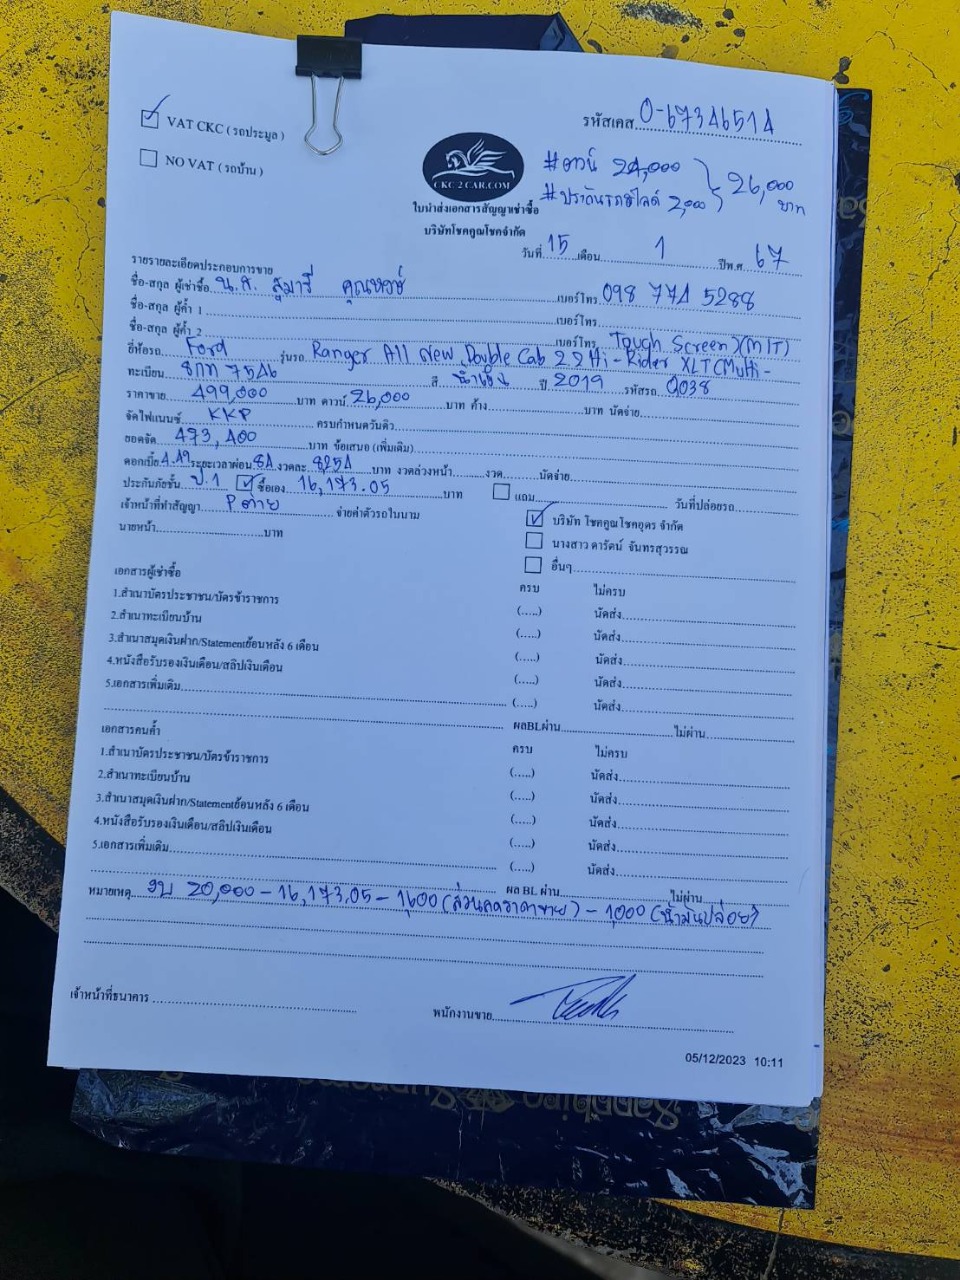 ☑ VAT CKC ( รถประมูล )
☐ NO VAT ( รถบ้าน )
รหัสเคส 0-67346514
#ดาวน์ 24,000
#ประกันรถมือได้ 2,000
26,000 บาท
CKC 2 CAR.COM
ใบนำส่งเอกสารสัญญาเช่าซื้อ
บริษัทโชคคูณโชคจำกัด
วันที่ 15 เดือน 1 ปีพ.ศ. 67
รายรายละเอียดประกอบการขาย
ชื่อ-สกุล ผู้เช่าซื้อ น.ส. สุมารี คุณหงษ์ เบอร์โทร 098 774 5288
ชื่อ-สกุล ผู้ค้ำ 1 เบอร์โทร
ชื่อ-สกุล ผู้ค้ำ 2 เบอร์โทร
Tough Screen)(MIT)
ยี่ห้อรถ Ford รุ่นรถ Ranger All New Double Cab 2.2 Hi-Rider XLT (Multi-
ทะเบียน 8กท 7546 สี น้ำเงิน ปี 2019 รหัสรถ Q038
ราคาขาย 499,000 บาท ดาวน์ 26,000 บาท ค้าง บาท นัดจ่าย
จัดไฟแนนซ์ KKP ครบกำหนดวันคิว
ยอดจัด 473,400 บาท ข้อเสนอ (เพิ่มเติม)
ดอกเบี้ย 4.49 ระยะเวลาผ่อน 84 งวดละ 8254 บาท งวดล่วงหน้า งวด นัดจ่าย
ประกันภัยชั้น ป.1 ☑ ซื้อเอง 16,173.05 บาท ☐ แถม วันที่ปล่อยรถ
เจ้าหน้าที่ทำสัญญา Pต่าย จ่ายค่าตัวรถในนาม ☑ บริษัท โชคคูณโชคอุดร จำกัด
นายหน้า บาท ☐ นางสาว ดารัตน์ จันทรสุวรรณ
☐ อื่นๆ
เอกสารผู้เช่าซื้อ ครบ ไม่ครบ
1.สำเนาบัตรประชาชน/บัตรข้าราชการ (.....) นัดส่ง
2.สำเนาทะเบียนบ้าน (.....) นัดส่ง
3.สำเนาสมุดเงินฝาก/Statementย้อนหลัง 6 เดือน (.....) นัดส่ง
4.หนังสือรับรองเงินเดือน/สลิปเงินเดือน (.....) นัดส่ง
5.เอกสารเพิ่มเติม (.....) นัดส่ง
ผลBLผ่าน ไม่ผ่าน
เอกสารคนค้ำ ครบ ไม่ครบ
1.สำเนาบัตรประชาชน/บัตรข้าราชการ (.....) นัดส่ง
2.สำเนาทะเบียนบ้าน (.....) นัดส่ง
3.สำเนาสมุดเงินฝาก/Statementย้อนหลัง 6 เดือน (.....) นัดส่ง
4.หนังสือรับรองเงินเดือน/สลิปเงินเดือน (.....) นัดส่ง
5.เอกสารเพิ่มเติม (.....) นัดส่ง
ผล BL ผ่าน ไม่ผ่าน
หมายเหตุ งบ 20,000 - 16,173.05 - 1,600 (ส่วนลดราคาขาย) - 1,000 (น้ำมันปล่อย)
เจ้าหน้าที่ธนาคาร
พนักงานขาย
05/12/2023 10:11